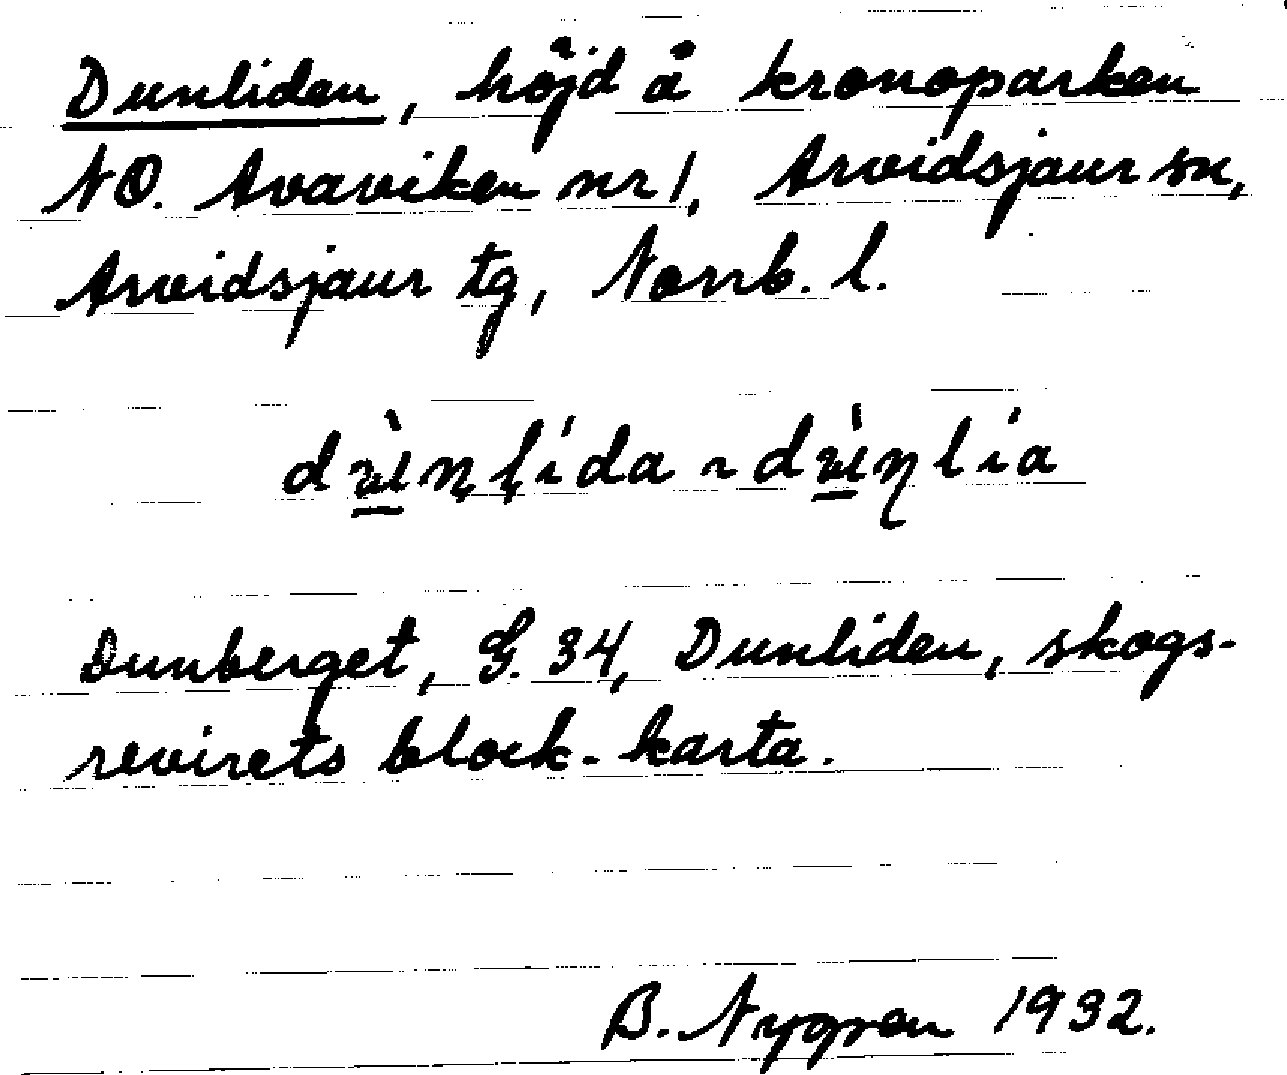 Dunliden, höjd å kronoparken
NO. Avaviken nr 1, Arvidsjaur sn,
Arvidsjaur tg, Norrb. l.
Dunberget, G. 34, Dunliden, skogs-
revirets block-karta.
B. Nygren 1932.